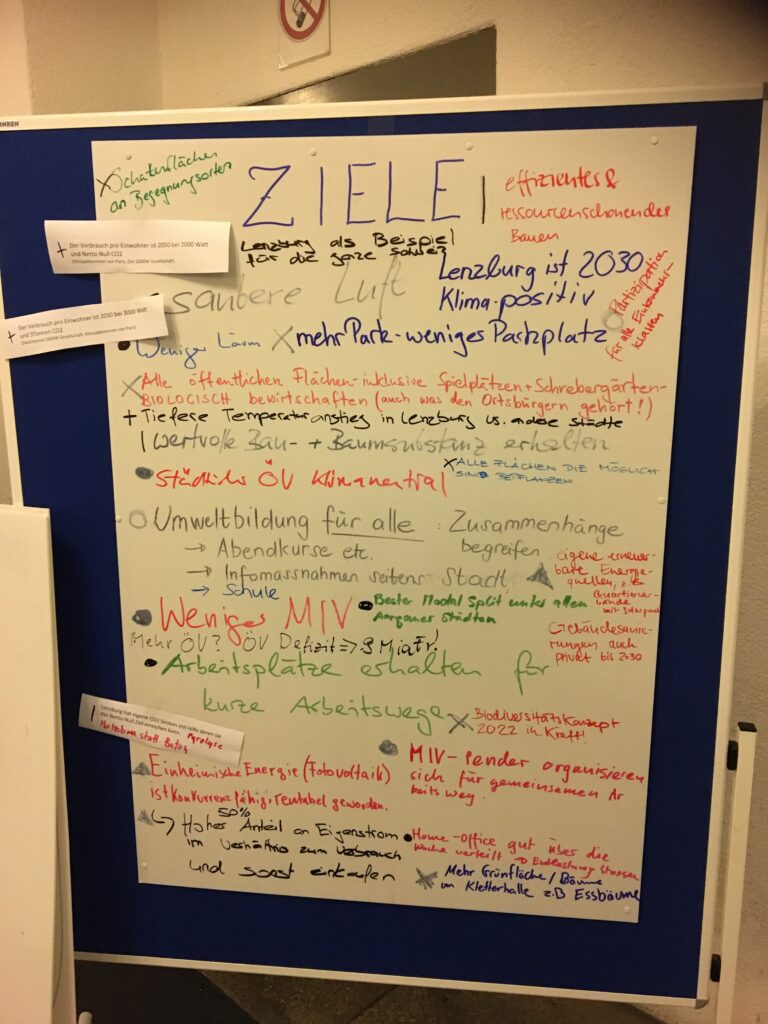 Schattenflächen
an Begegnungsorten
ZIELE
effizientes &
ressourcenschonendes
Bauen
+ Der Verbrauch pro Einwohner ist 2050 bei 2000 Watt
und Netto-Null CO2
(Klimaabkommen von Paris, Ziel 2000W Gesellschaft)
Lenzburg als Beispiel
für die ganze
Lenzburg ist 2030
Klima-positiv
saubere Luft
Partizipation
für alle
klassen
+ Der Verbrauch pro Einwohner ist 2030 bei 3000 Watt
und 3Tonnen CO2
(Zwischenziel 2000W Gesellschaft, Klimaabkommen von Paris)
Weniger Lärm
mehr Park-weniger Parkplatz
Alle öffentlichen Flächen-inklusive Spielplätzen+Schrebergärten-
BIOLOGISCH bewirtschaften (auch was den Ortsbürgern gehört!)
+ Tiefere Temperaturanstieg in Lenzburg vs. andere Städte
wertvolle Bau- + Baumsubstanz erhalten
ALLE FLÄCHEN DIE MÖGLICH
SIND BEPFLANZEN
Städtischer ÖV klimaneutral
Umweltbildung für alle : Zusammenhänge
begreifen
→ Abendkurse etc.
→ Infomassnahmen seitens Stadt
→ Schule
eigene erneuer-
bare Energie-
quellen, z.B.
Quartierver-
bände
mit Solarpark
Weniger MIV
Bester Modal Split unter allen
Aargauer Städten
Mehr ÖV? ÖV Defizit => 9 Mia Fr!
Gebäudesanie-
rungen auch
privat bis 2030
Arbeitsplätze erhalten für
kurze Arbeitswege
Biodiversitätskonzept
2022 in Kraft!
Lenzburg hat eigene CO2 Senken mit Hilfe deren sie
das Netto-Null Ziel erreichen kann. Pyrolyse
Holzbau statt Beton
MIV-Pendler organisieren
sich für gemeinsamen Ar
beitsweg.
Einheimische Energie (Fotovoltaik)
ist konkurrenzfähig, rentabel geworden.
50%
Hoher Anteil an Eigenstrom
im Verhältnis zum Verbrauch
und sonst einkaufen
Home-Office gut über die
Woche verteilt → Entlastung
Mehr Grünfläche / Bäume
um Kletterhalle z.B Essbäume